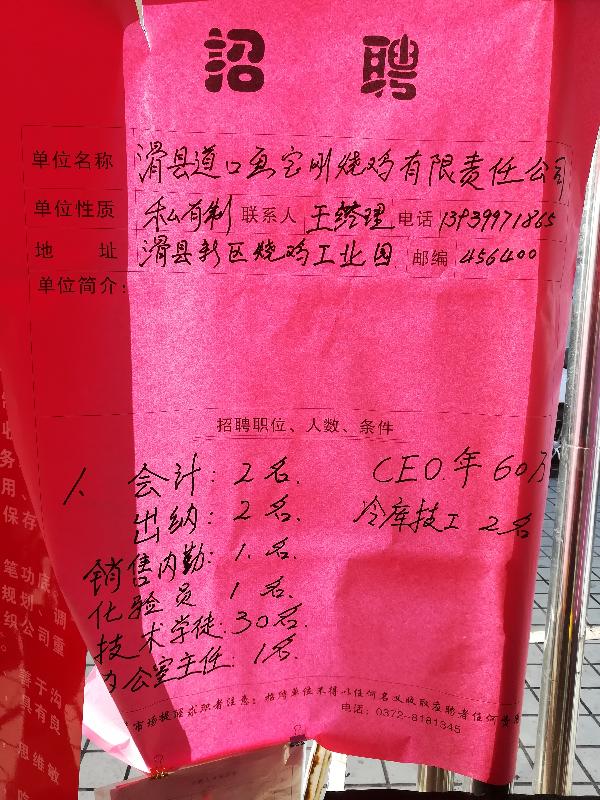 招 聘
单位名称 滑县道口画宝刚烧鸡有限责任公司
单位性质 私有制 联系人 王经理 电话 13939971865
地 址 滑县新区烧鸡工业园 邮编 456400
单位简介：
招聘职位、人数、条件
会计：2名. CEO.年60万
出纳：2名. 冷库技工 2名
销售内勤：1.名.
化验员 1名.
技术学徒：30名.
办公室主任：1名.
市场提醒求职者注意：招聘单位不得以任何名义收取应聘者任何费用
电话：0372--8181345
务
用、
保存
笔功底
调
规划
织公司重
善于沟
具有良
思维敏